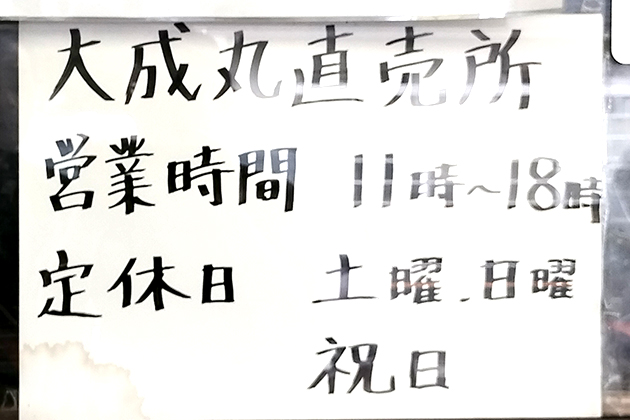 大成丸直売所
営業時間 11時~18時
定休日 土曜.日曜
祝日